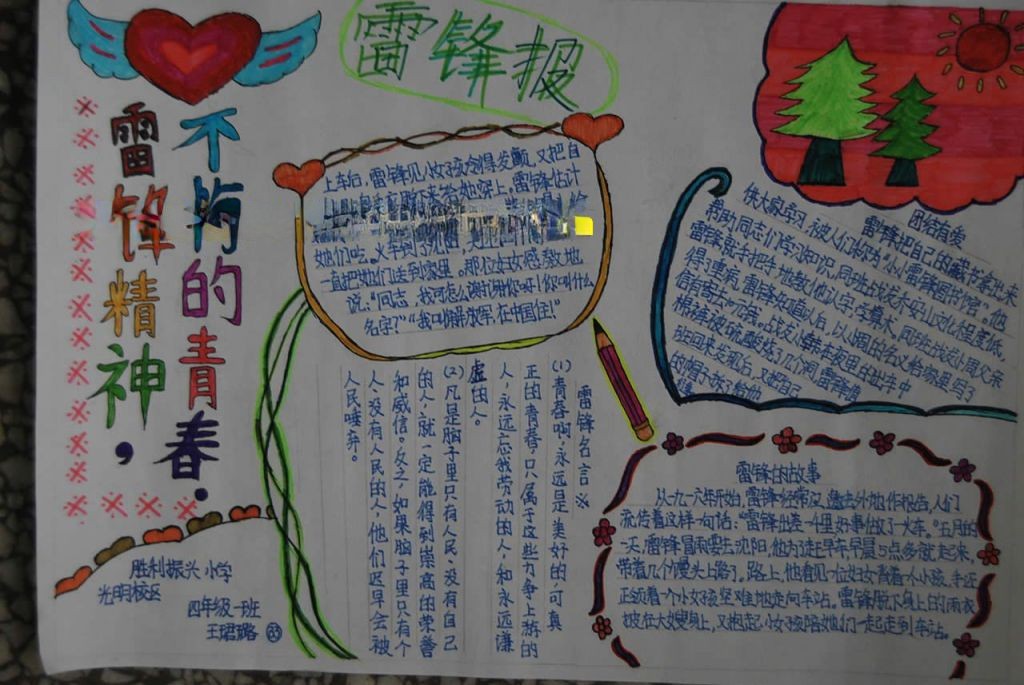 雷锋报
雷锋精神，
不朽的青春.
上车后，雷锋见小女孩冷得发颤，又把自
她们吃。火车到了沈阳
一直把她们送到家里。那位妇女感激地
说：“同志，我可怎么谢谢你呀！你叫什么
名字？”“我叫解放军，在中国住！”
团结友爱
雷锋把自己的藏书拿出来
供大家学习，被人们称为“小小雷锋图书馆”。他
帮助同志们学习知识，同班战友乔安山文化程度低，
雷锋就手把手地教他认字，学算术，同班战友小周父亲
得了重病，雷锋知道以后，以小周的名义给家里写了
信有寄去十元钱。战友小韩在夜里出车
棉裤被硫酸烧了几个洞，雷锋值
班回来发现后，又把自己
的帽子拆了给他
雷锋名言※
(1)青春啊，永远是美好的，可真
正的青春，只属于这些力争上游的
人，永远忘我劳动的人，和永远谦
虚的人。
(2)凡是脑子里只有人民、没有自己
的人，就一定能得到崇高的荣誉
和威信。反之，如果脑子里只有个
人、没有人民的人，他们迟早会被
人民唾弃。
雷锋的故事
流传着这样一句话：“雷锋出差一千里，好事做了一火车。”五月的
一天，雷锋冒雨要去沈阳，他为赶早车早晨5点多就起来，
带着几个馒头上路了。路上，他看见一位妇女背着个小孩，手还
正领着一个小女孩艰难地走向车站。雷锋脱下身上的雨衣
披在大嫂身上，又抱起小女孩陪她们一起走到车站。
胜利振兴小学
光明校区
四年级一班